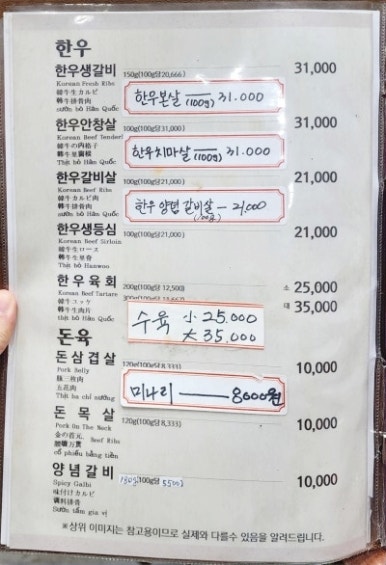 한우
한우생갈비 150g(100g당20,666) 31,000
Korean Fresh Ribs
韓牛生カルビ
韩牛排骨肉
sườn bò Hàn Quốc
한우본살 (100g) 31.000
한우안창살 100g(100g당31,000) 31,000
韩牛里脊
Thịt bò Hàn Quốc
한우치마살 (100g) 31.000
한우갈비살 100g(100g당21,000) 21,000
Korean Beef Ribs
韓牛カルビ肉
韩牛排骨肉
sườn bò Hàn Quốc
한우 양념 갈비살 - 21,000
한우생등심 100g(100g당21,000) 21,000
Korean Beef Sirloin
韓牛生ロース
韩牛里脊
Thịt bò Hanwoo
한우육회 200g(100g당 12,500) 소 25,000
Korean Beef Tartare 대 35,000
韓牛ユッケ
韩牛生肉片
thịt bò Hàn Quốc
수육 小 25.000
大 35.000
돈육
돈삼겹살 120g(100g당8,333) 10,000
Pork Belly
豚三枚肉
五花肉
Thịt ba chỉ nướng
미나리 — 8000원
돈목살 120g(100g당8,333) 10,000
Pork On The Neck
Beef Ribs
cổ phiếu bằng tiền
양념갈비 (100g당 10,000
Spicy Galbi
味付けカルビ
调料排骨
Sườn tẩm gia vị
※상위 이미지는 참고용이므로 실제와 다를수 있음을 알려드립니다.